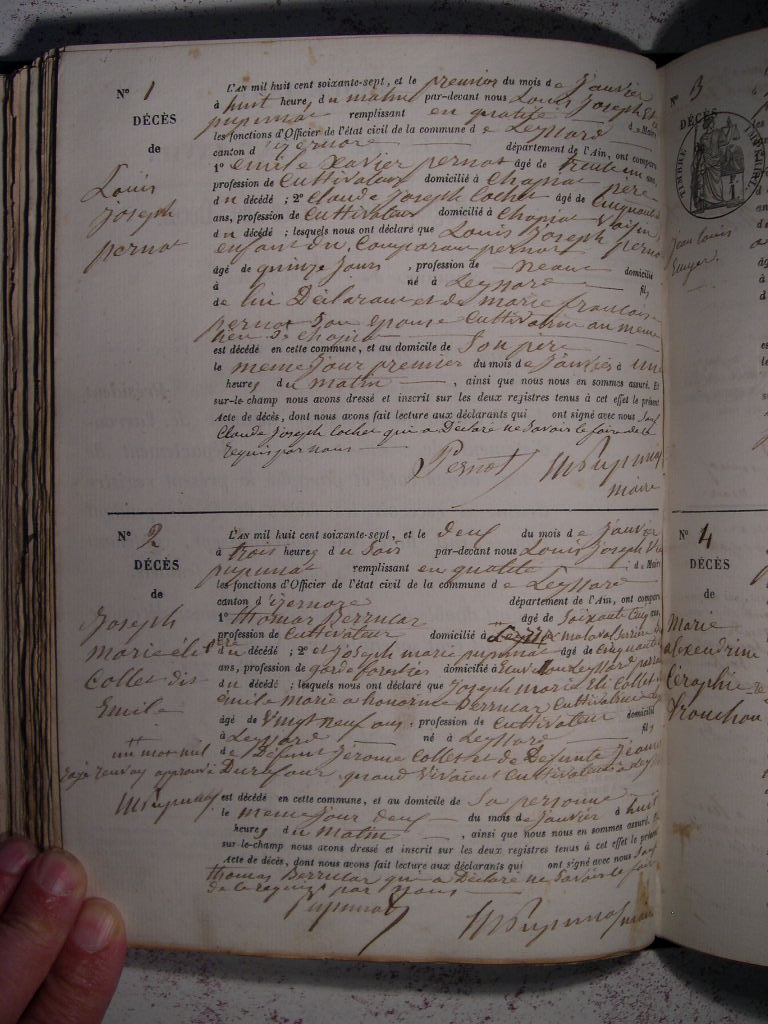 N° 1
DÉCÈS
de
Louis
joseph
pernot
L'AN mil huit cent soixante-sept, et le premier du mois de janvier
à huit heures du matin par-devant nous Louis Joseph
pupunat remplissant en qualité de Maire
les fonctions d'Officier de l'état civil de la commune de Leyssard
canton d'izernore département de l'Ain, ont comparu
1° emile Xavier pernot âgé de trente un ans
profession de Cultivateur domicilié à Chapiat père
du décédé ; 2° Claude Joseph Cochet âgé de
ans, profession de Cultivateur domicilié à Chapiat Voisin
du décédé ; lesquels nous ont déclaré que Louis Joseph pernot
enfant du Comparant pernot
âgé de quinze jours , profession de neant domicilié
à né à Leyssard fils
de lui Déclarant et de marie francoise
pernot Son epouse Cultivatrice au meme
lieu de Chapiat
est décédé en cette commune, et au domicile de Son pere
le meme jour premier du mois de janvier à une
heures du matin , ainsi que nous nous en sommes assuré. Et
sur-le-champ nous avons dressé et inscrit sur les deux registres tenus à cet effet le présent
Acte de décès, dont nous avons fait lecture aux déclarants qui ont signé avec nous Sauf
Claude Joseph Cochet qui a Déclaré ne Savoir le faire de ce
requis par nous
Pernot Pupunat
maire
N° 2
DÉCÈS
de
Joseph
marie éli
Collet dis
Emile
un mot nul
rayé renvoi approuvé
Pupunat
L'AN mil huit cent soixante-sept, et le Deux du mois de janvier
à trois heures du Soir par-devant nous Louis Joseph
pupunat remplissant en qualité de Maire
les fonctions d'Officier de l'état civil de la commune de Leyssard
canton d'izernore département de l'Ain, ont comparu
1° thomas Berrucar âgé de Soixante Cinq ans
profession de Cultivateur domicilié à
du décédé ; 2° et Joseph marie pupunat âgé de Cinquante
ans, profession de garde forestier domicilié à Leyssard
du décédé ; lesquels nous ont déclaré que Joseph marie Eli Collet
émile marie a honorine Berrucar Cultivatrice
âgé de Vingt neuf ans , profession de Cultivateur domicilié
à Leyssard né à Leyssard fils
de Défunt Jérome Collet et de Defunte Jeanne
Durafour, quand Vivaient Cultivateurs à Leyssard
est décédé en cette commune, et au domicile de Sa personne
le meme jour deux du mois de janvier à huit
heures du matin , ainsi que nous nous en sommes assuré. Et
sur-le-champ nous avons dressé et inscrit sur les deux registres tenus à cet effet le présent
Acte de décès, dont nous avons fait lecture aux déclarants qui ont signé avec nous Sauf
thomas Berrucar qui a Déclaré ne Savoir le faire
de ce requis par nous
Pupunat Pupunat maire
N° 3
DÉCÈS
TIMBRE
Jean Louis
N° 4
DÉCÈS
de
Marie
alexendrine
Céraphie
Trouchon